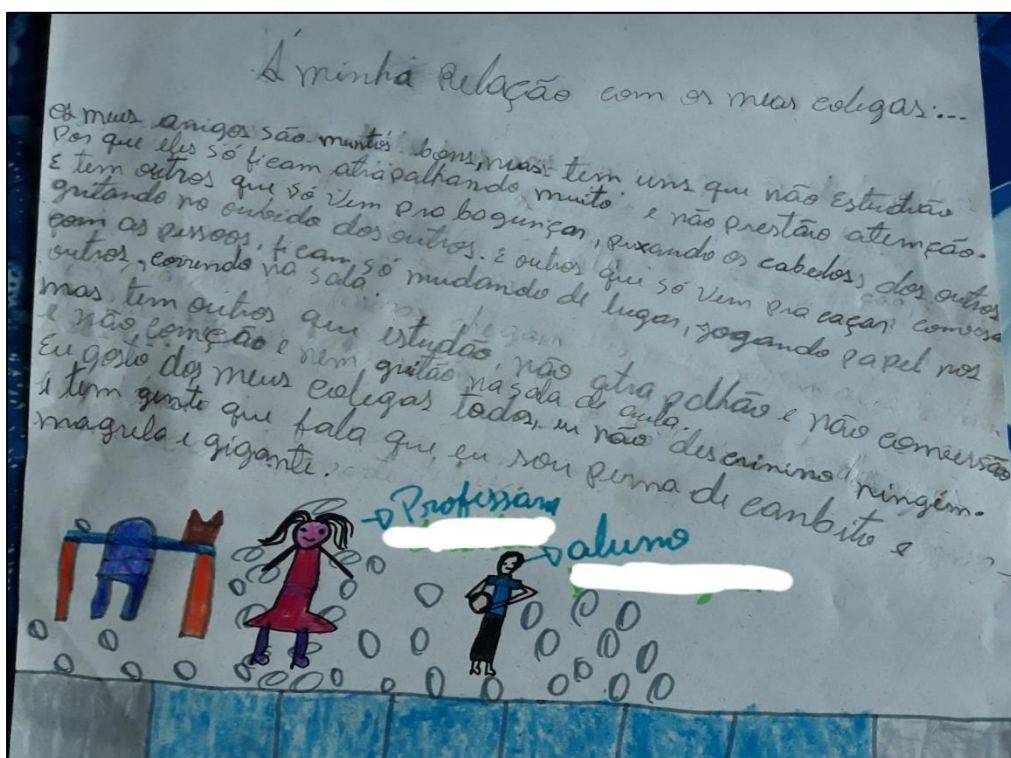 A minha relação com os meus colegas:...
Os meus amigos são muntos bons, mas tem uns que não Estudão
Por que eles só ficam atrapalhando muito e não prestão atemção.
E tem outros que só vem pra bagunçar, puxando os cabelos, dos outros
gritando no oubido dos outros. E outros que só vem pra caçar comversa
com as pessoas, ficam só mudando de lugar, jogando papel nos
outros, correndo na sala.
mas tem outros que estudão, não atrapalhão e não comverssão
e não começão e nem gritão na sala de aula.
Eu gosto dos meus colegas todos, eu não descrimino ningém.
E tem gente que fala que eu sou perna de canbito e
magrela e gigante.
Professora
aluno